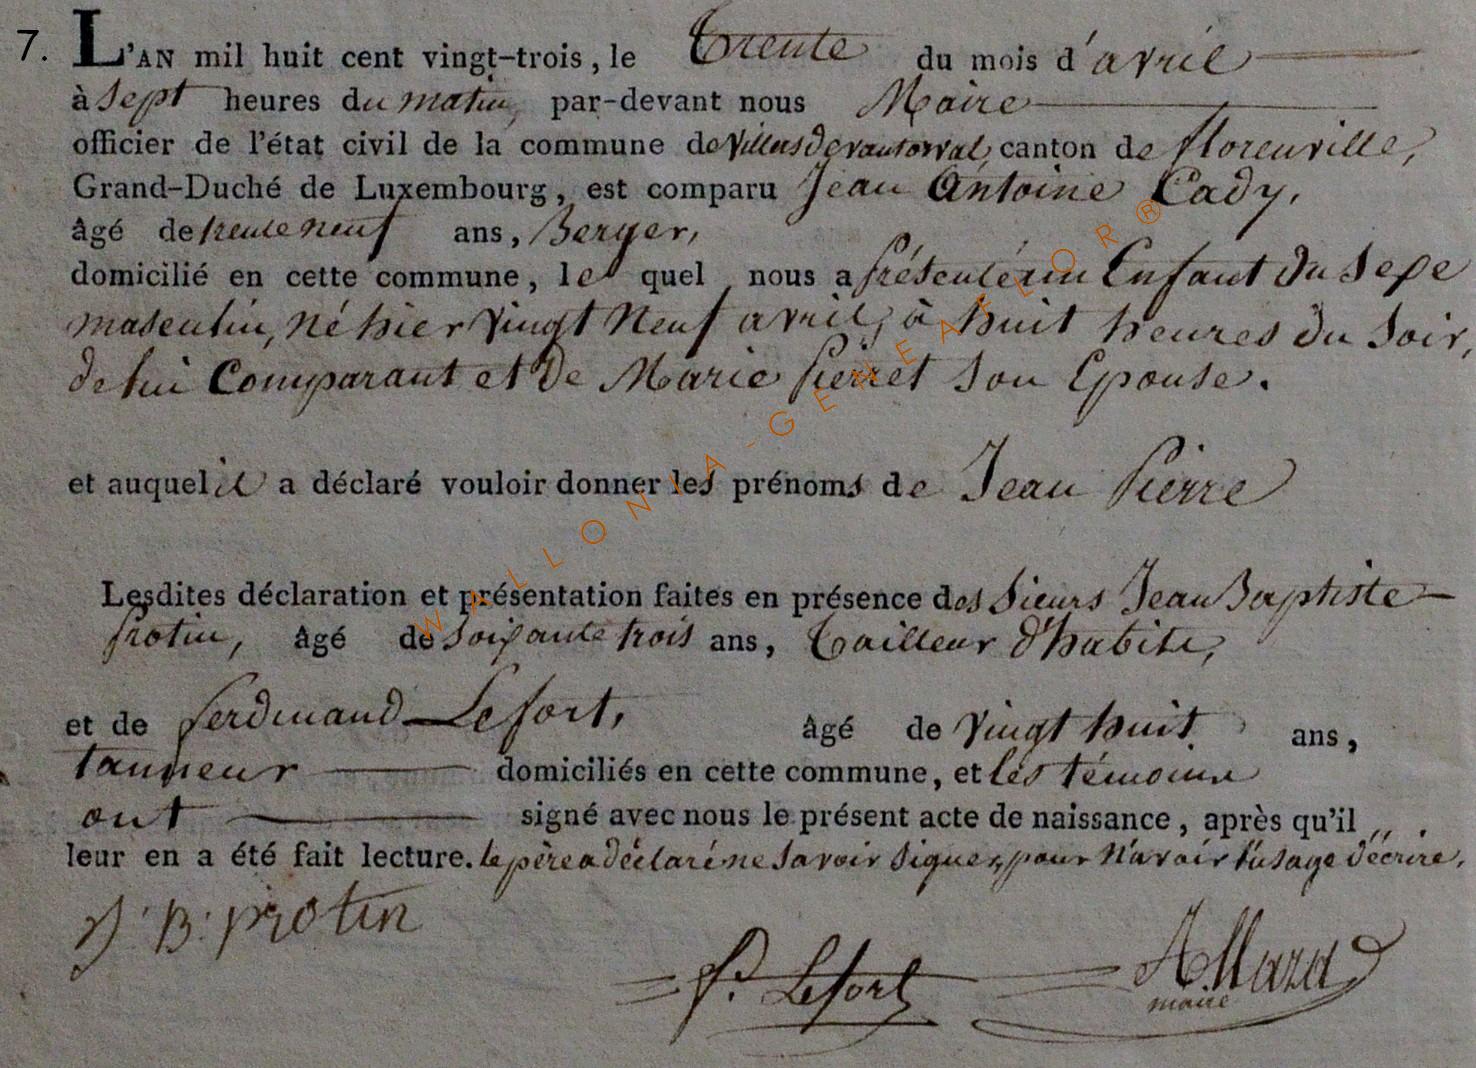 7. L'AN mil huit cent vingt-trois, le trente du mois d'avril
à sept heures du matin, par-devant nous Maire
officier de l'état civil de la commune de villers devant orval, canton de florenville,
Grand-Duché de Luxembourg, est comparu Jean Antoine Cady,
âgé de trente neuf ans, Berger,
domicilié en cette commune, le quel nous a présenté un Enfant du Sexe
masculin, né hier vingt Neuf avril, à huit heures du Soir,
de lui Comparant et de Marie Pierret Son Epouse.
et auquel il a déclaré vouloir donner les prénoms de Jean Pierre
Lesdites déclaration et présentation faites en présence des Sieurs Jean Baptiste
protin, âgé de Soixante trois ans, tailleur d'habits,
et de ferdinand Lefort, âgé de vingt huit ans,
tanneur domiciliés en cette commune, et les témoins
ont signé avec nous le présent acte de naissance, après qu'il
leur en a été fait lecture. le père a déclaré ne Savoir Signer, pour N'avoir l'usage d'écrire.
J. B. protin
f. Lefort
maire
WALLONIA-GENEAFLOR®